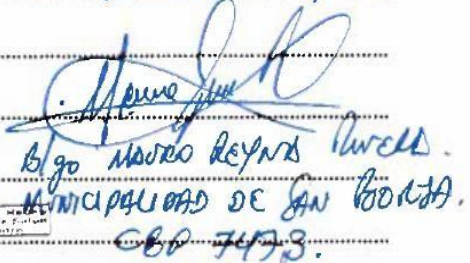 Blgo MAURO REYNA RIVERA.
MUNICIPALIDAD DE SAN BORJA.
CBP 7473.